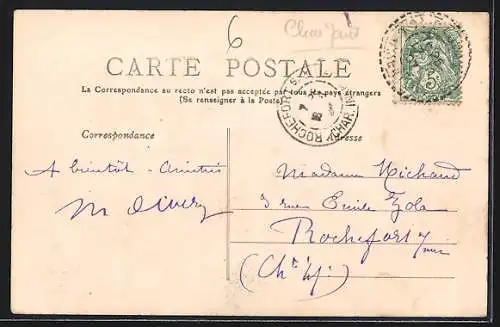 6
CARTE POSTALE
La Correspondance au recto n'est pas acceptée par tous les pays étrangers
(Se renseigner à la Poste)
Correspondance
A bientôt - amitiés
Madame Michaud
3 rue Emile Zola
Rochefort s/ mer
(Ch^te Inf^re)